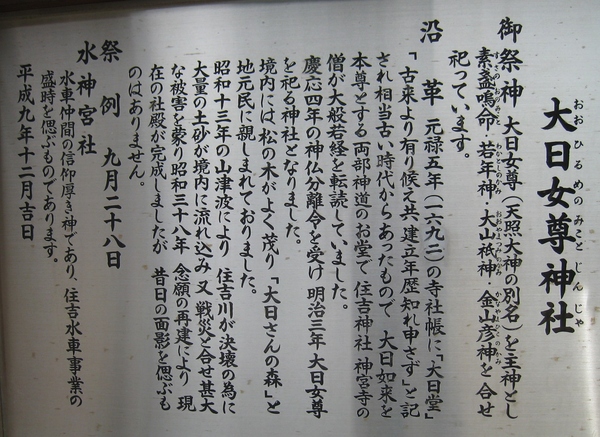 大日女尊神社
おおひるめのみことじんじゃ
御祭神 大日女尊(天照大神の別名)を主神とし
素盞嗚命・若年神・大山祇神・金山彦神を合せ
祀っています。
沿革 元禄五年(一六九二)の寺社帳に「大日堂」
「古来より有り候え共 建立年歴知れ申さず」と記
され相当古い時代からあったもので 大日如来を
本尊とする両部神道のお堂で住吉神社 神宮寺の
僧が大般若経を転読していました。
慶応四年の神仏分離令を受け 明治三年 大日女尊
を祀る神社となりました。
境内には松の木がよく茂り「大日さんの森」と
地元民に親しまれておりました。
昭和十三年の山津波により 住吉川が決壊の為に
大量の土砂が境内に流れ込み 又 戦災と合せ甚大
な被害を蒙り昭和三十八年 念願の再建により 現
在の社殿が完成しましたが 昔日の面影を偲ぶも
のはありません。
祭例 九月二十八日
水神宮社
水車仲間の信仰厚き神であり、住吉水車事業の
盛時を偲ぶものであります。
平成九年十二月吉日